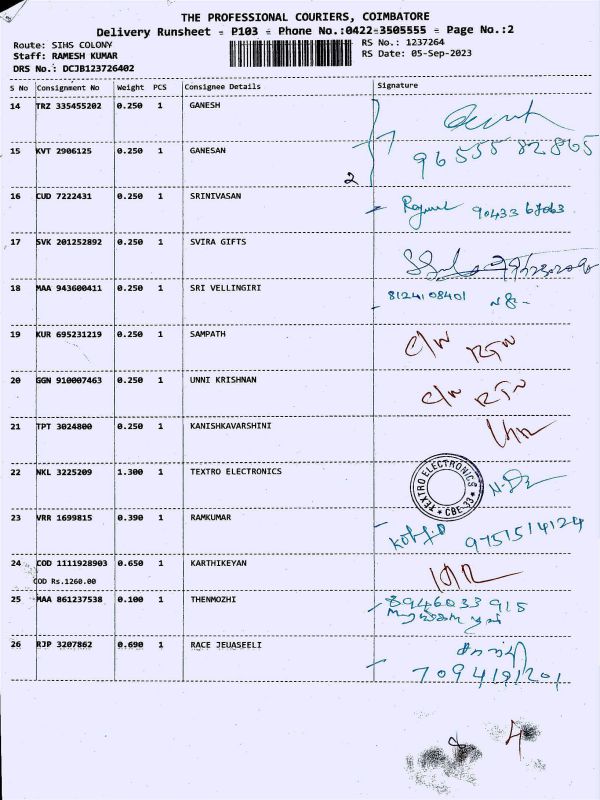 THE PROFESSIONAL COURIERS, COIMBATORE
Delivery Runsheet - P103 - Phone No.:0422-3505555 - Page No.:2
Route: SIHS COLONY RS No.: 1237264
Staff: RAMESH KUMAR RS Date: 05-Sep-2023
DRS No.: DCJB123726402
S No Consignment No Weight PCS Consignee Details Signature
14 TRZ 335455202 0.250 1 GANESH
15 KVT 2906125 0.250 1 GANESAN 96555 82865
2
16 CUD 7222431 0.250 1 SRINIVASAN 90433 67063
17 SVK 201252892 0.250 1 SVIRA GIFTS
18 MAA 943600411 0.250 1 SRI VELLINGIRI 8124108401
19 KUR 695231219 0.250 1 SAMPATH C/N RTN
20 GGN 910007463 0.250 1 UNNI KRISHNAN C/N RTN
21 TPT 3024800 0.250 1 KANISHKAVARSHINI
22 NKL 3225209 1.300 1 TEXTRO ELECTRONICS TEXTRO ELECTRONICS * CBE-33 *
23 VRR 1699815 0.390 1 RAMKUMAR 9751514124
24 COD 1111928903 0.650 1 KARTHIKEYAN
COD Rs.1260.00
25 MAA 861237538 0.100 1 THENMOZHI 8946033915
26 RJP 3207862 0.690 1 RACE JEUASEELI
7094191201